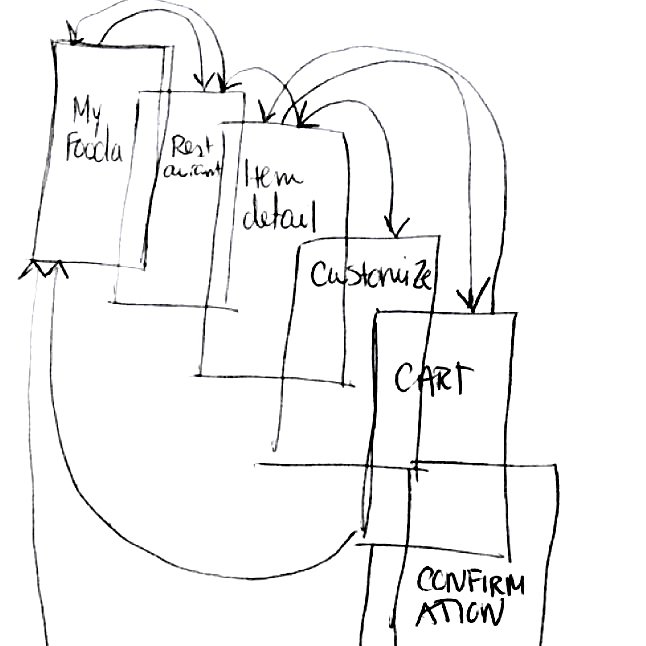 My
Fooda
Rest
aurant
Item
detail
Customize
CART
CONFIRM
ATION